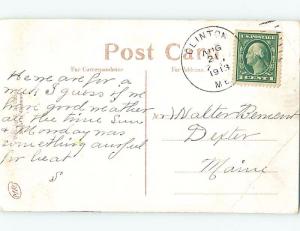 Post Card
For Correspondence
For Address
CLINTON
AUG
21
1913
ME.
U.S. POSTAGE
1 CENT 1
Here we are for a
week I guess if we
have good weather
all the time Sun
& Monday was
something awful
for heat
Mr Walter Dement
Dexter
Maine